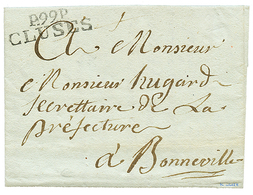 P.99.P.
CLUSES
A Monsieur
Monsieur hugard
Secrettaire de La
préfecture
à Bonneville